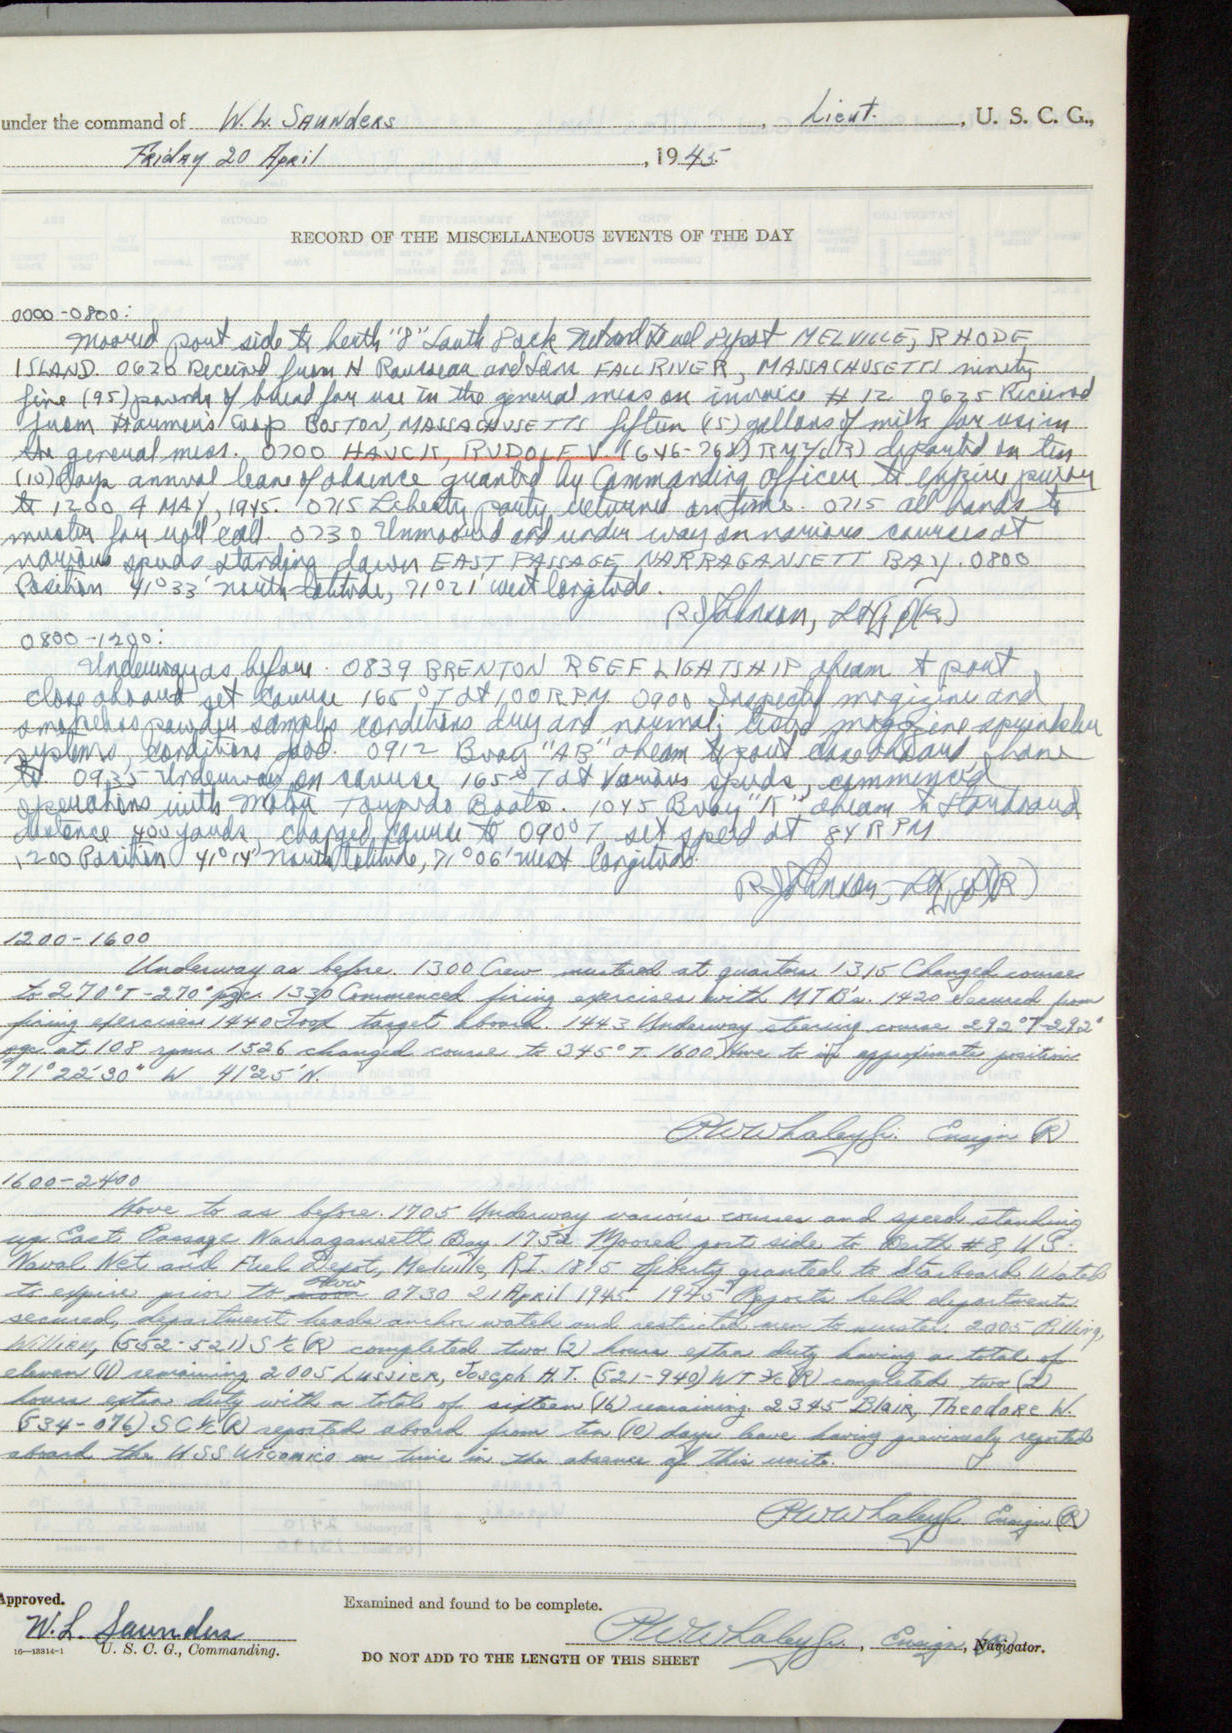 under the command of W. L. SAUNDERS, Lieut., U. S. C. G.,
Friday 20 April, 1945
RECORD OF THE MISCELLANEOUS EVENTS OF THE DAY
0000-0800:
Moored port side to berth "8" South Dock Net and Fuel Depot MELVILLE, RHODE
ISLAND. 0620 Received from N Rousseau and Sons FALL RIVER, MASSACHUSETTS ninety
five (95) pounds of bread for use in the general mess on invoice # 12 0625 Received
from Coop BOSTON, MASSACHUSETTS fifteen (15) gallons of milk for use in
the general mess. 0700 HAUCK, RUDOLF V. (646-768) RM2/c(R) departed on ten
(10) days annual leave of absence granted by Commanding Officer to expire prior
to 1200 4 MAY, 1945. 0715 Liberty party returned on time. 0715 all hands to
muster for roll call. 0730 Unmoored and under way on various courses at
various speeds standing down EAST PASSAGE NARRAGANSETT BAY. 0800
Position 41°33' north latitude, 71°21' west longitude.
R J Johnson, Lt(jg)(R)
0800-1200:
Underway as before. 0839 BRENTON REEF LIGHTSHIP abeam to port
close aboard set course 165°T at 100 RPM 0900 Inspected magizine and
smokeless powder samples conditions dry and normal; tested magazine sprinkler
systems, conditions good. 0912 Buoy "AB" abeam to port close aboard, hove
to 0935 Underway on course 165°T at various speeds, commenced
operations with Motor Torpedo Boats. 1045 Buoy "K" abeam to starboard
distance 400 yards, changed course to 090°T, set speed at 84 RPM
1200 Position 41°14' north latitude, 71°06' west longitude.
R J Johnson, Lt(jg)(R)
1200-1600
Underway as before. 1300 Crew mustered at quarters 1315 Changed course
to 270°T-270° pgc. 1330 Commenced firing exercises with MTB's. 1420 Secured from
firing exercises 1440 Took target aboard. 1443 Underway steering course 292°T-292°
pgc at 108 rpms 1526 changed course to 345°T. 1600 Hove to in approximate position
71°22'30" W 41°25'N.
P.W. Whaley Jr. Ensign (R)
1600-2400
Hove to as before. 1705 Underway various courses and speed standing
up East Passage Narragansett Bay. 1752 Moored port side to Berth #8, U.S.
Naval Net and Fuel Depot, Melville, R.I. 1815 Liberty granted to Starboard Watch
to expire prior to 0730 21 April 1945. 1945 Reports held departments
secured, department heads anchor watch and restricted men to muster. 2005 Billing,
William, (552-521) S1/c (R) completed two (2) hours extra duty having a total of
eleven (11) remaining 2005 LUSSIER, Joseph H.T. (521-940) WT 3/c (R) completed two (2)
hours extra duty with a total of sixteen (16) remaining. 2345 Blair, Theodore W.
(534-076) SC1/c (R) reported aboard from ten (10) days leave having previously reported
aboard the USS Wicomico on time in the absence of this unit.
P.W. Whaley Jr. Ensign (R)
Approved.
Examined and found to be complete.
W. L. Saunders
P.W. Whaley Jr., Ensign, (R) Navigator.
16—13314-1 U. S. C. G., Commanding.
DO NOT ADD TO THE LENGTH OF THIS SHEET